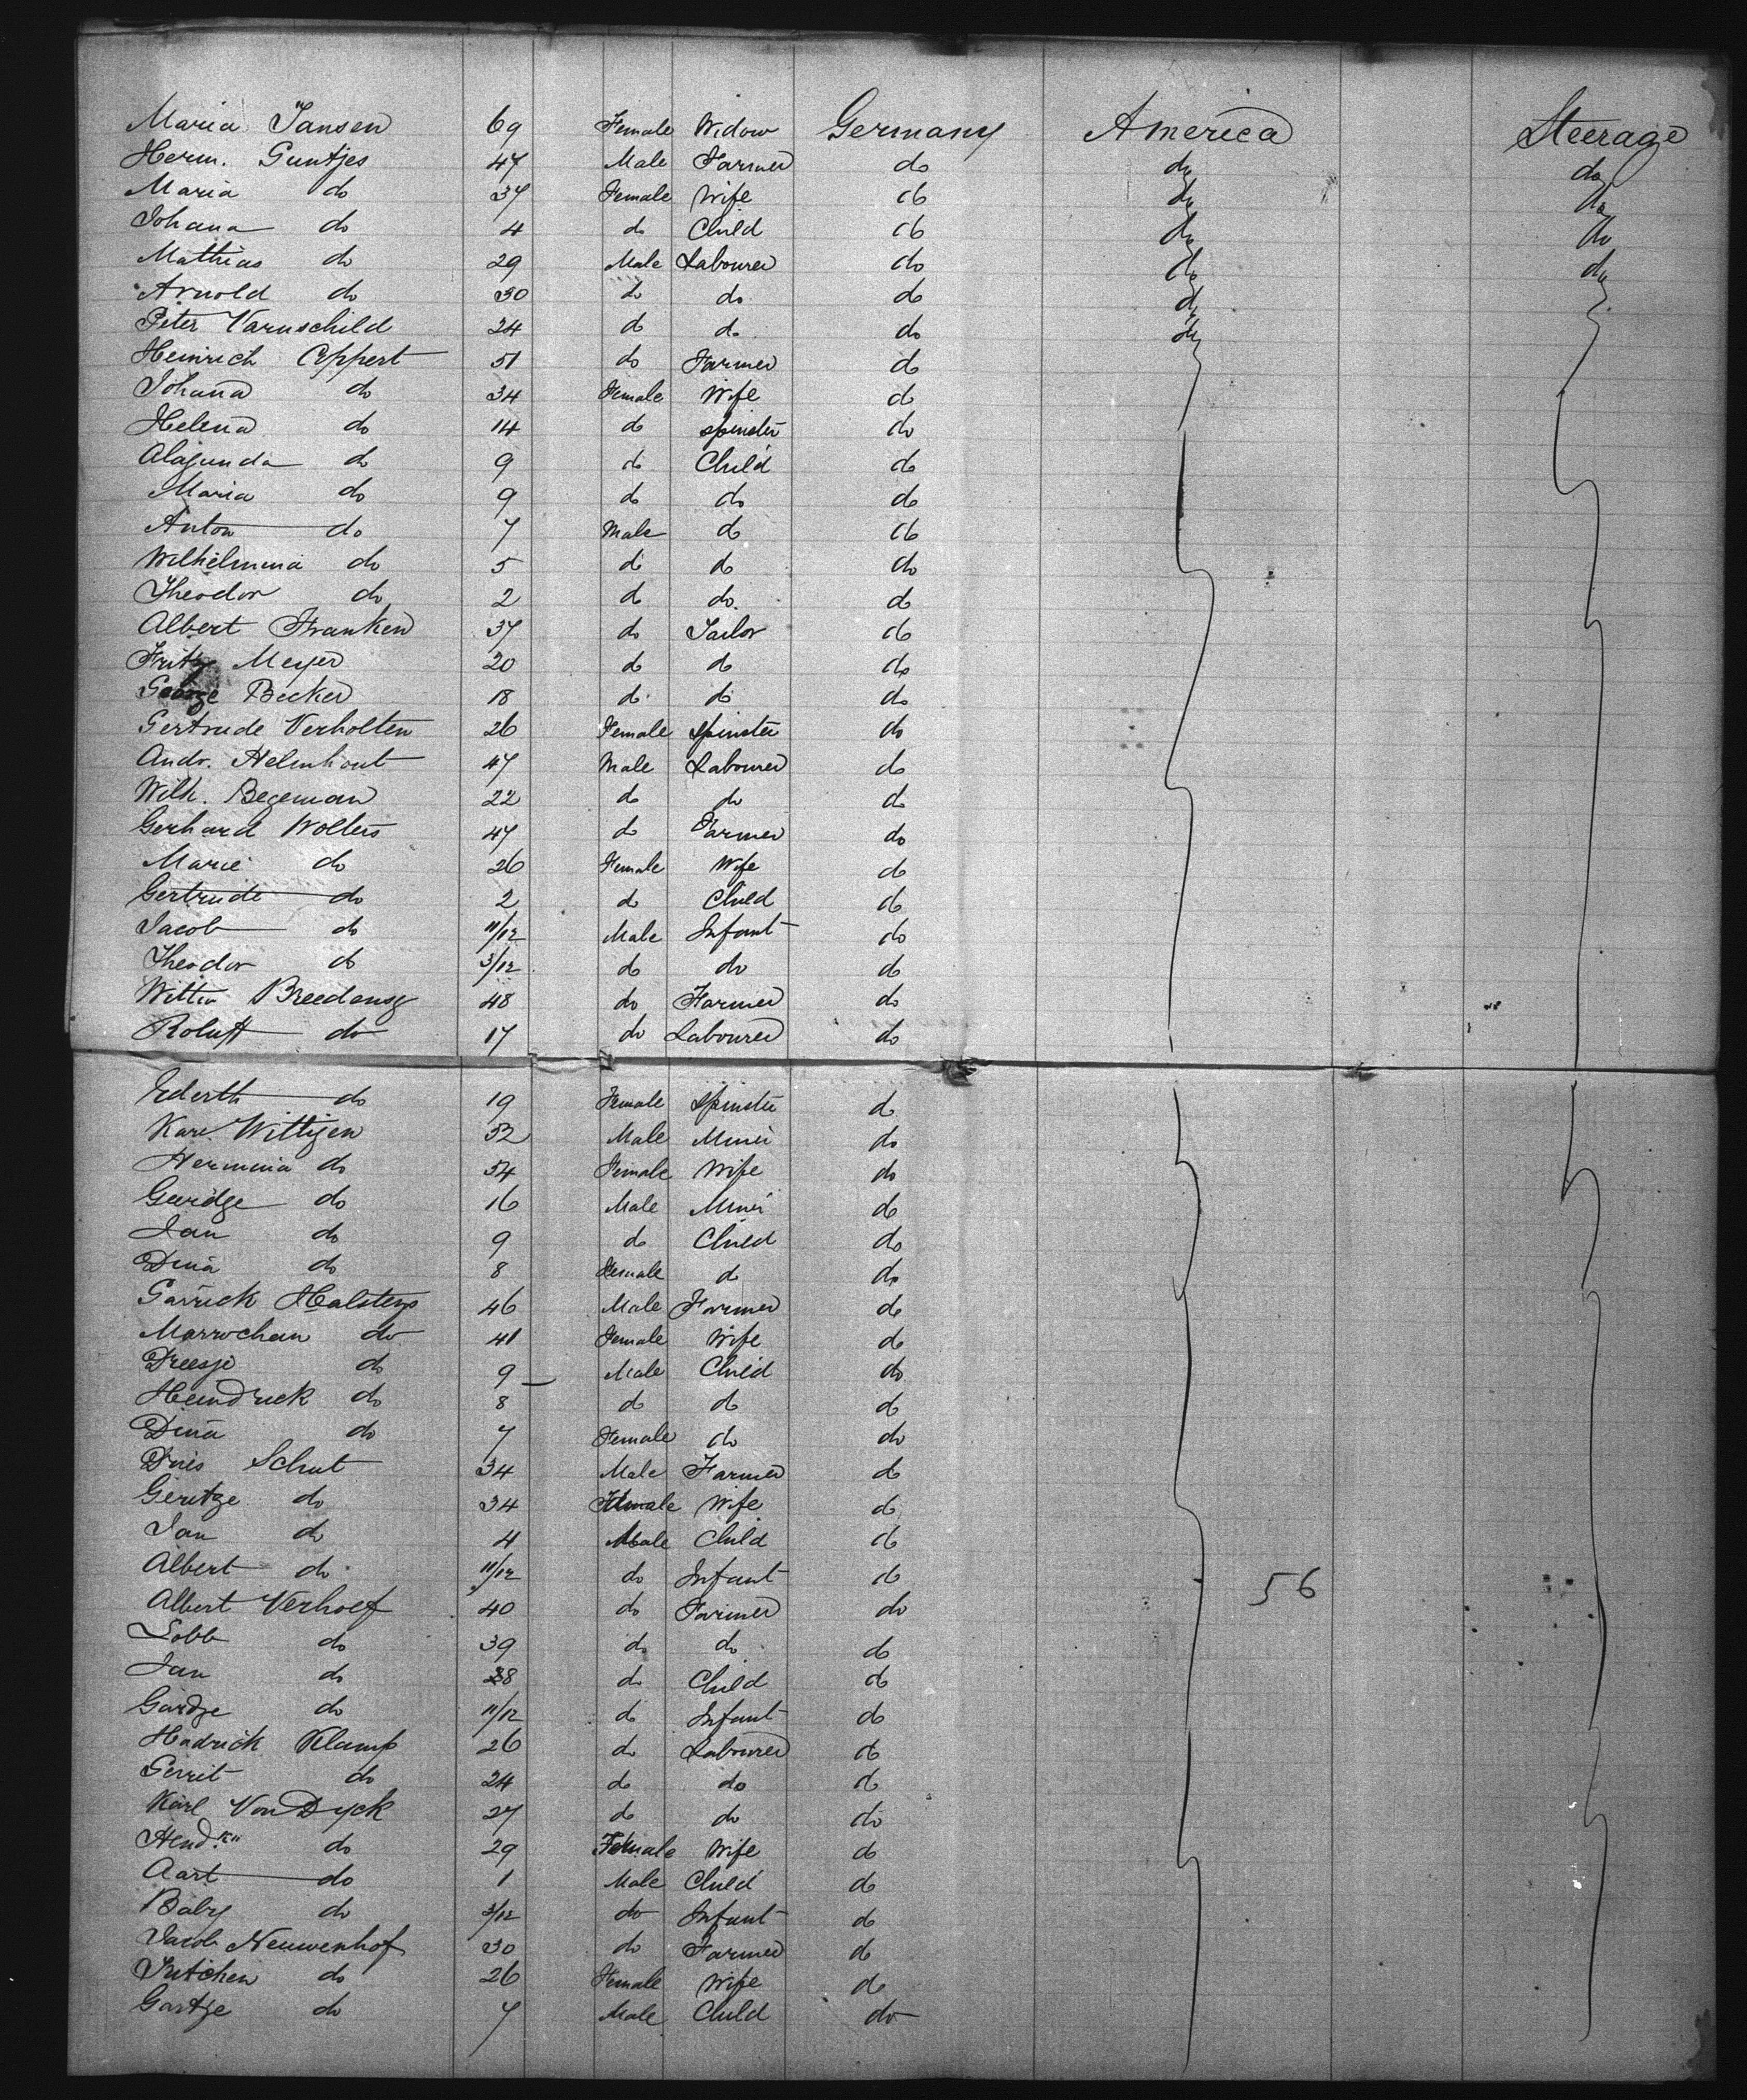 Maria Jansen 69 Female Widow Germany America Steerage
Herm. Guntjes 47 Male Farmer do do do
Maria do 37 Female Wife do do do
Johana do 4 do Child do do do
Mathias do 29 Male Labourer do do do
Arnold do 30 do do do do
Peter Varnschild 24 do do do do
Heinrich Eppert 51 do Farmer do
Johana do 34 Female Wife do
Helena do 14 do spinster do
Alagunda do 9 do Child do
Maria do 9 do do do
Anton do 7 Male do do
Wilhelmina do 5 do do do
Theodor do 2 do do. do
Albert Franken 37 do Tailor do
Fritz Meyer 20 do do do
George Becker 18 do do do
Gertrude Verholten 26 Female spinster do
Andr. Helmhout 47 Male Labourer do
Wilh. Begeman 22 do do do
Gerhard Wolters 47 do Farmer do
Marie do 26 Female Wife do
Gertrude do 2 do Child do
Jacob do 11/12 Male Infant do
Theodor do 3/12 do do do
Breedensy 48 do Farmer do
Roluft do 17 do Labourer do
Ederth do 19 Female spinster do
Karl Wittigen 52 Male Miner do
Hermina do 54 Female Wife do
Geeridge do 16 Male Miner do
Jan do 9 do Child do
Dina do 8 Female do do
Garrick Halsteyn 46 Male Farmer do
Marrochen do 41 Female Wife do
Dreesje do 9 Male Child do
Hendrick do 8 do do do
Dina do 7 Female do do
Dries Schut 34 Male Farmer do
Geritze do 34 Female Wife do
Jan do 4 Male Child do
Albert do 11/12 do Infant do 56
Albert Verhoef 40 do Farmer do
Lobb do 39 do do do
Jan do 8 do Child do
Gardze do 11/12 do Infant do
Hadrick Klamp 26 do Labourer do
Gerrit do 24 do do do
Karl Von Dyck 27 do do do
Hend.kn do 29 Female Wife do
Aart do 1 Male Child do
Baby do 3/12 do Infant do
Jacob Neuwenhof 30 do Farmer do
Intchen do 26 Female Wife do
Gartze do 7 Male Child do